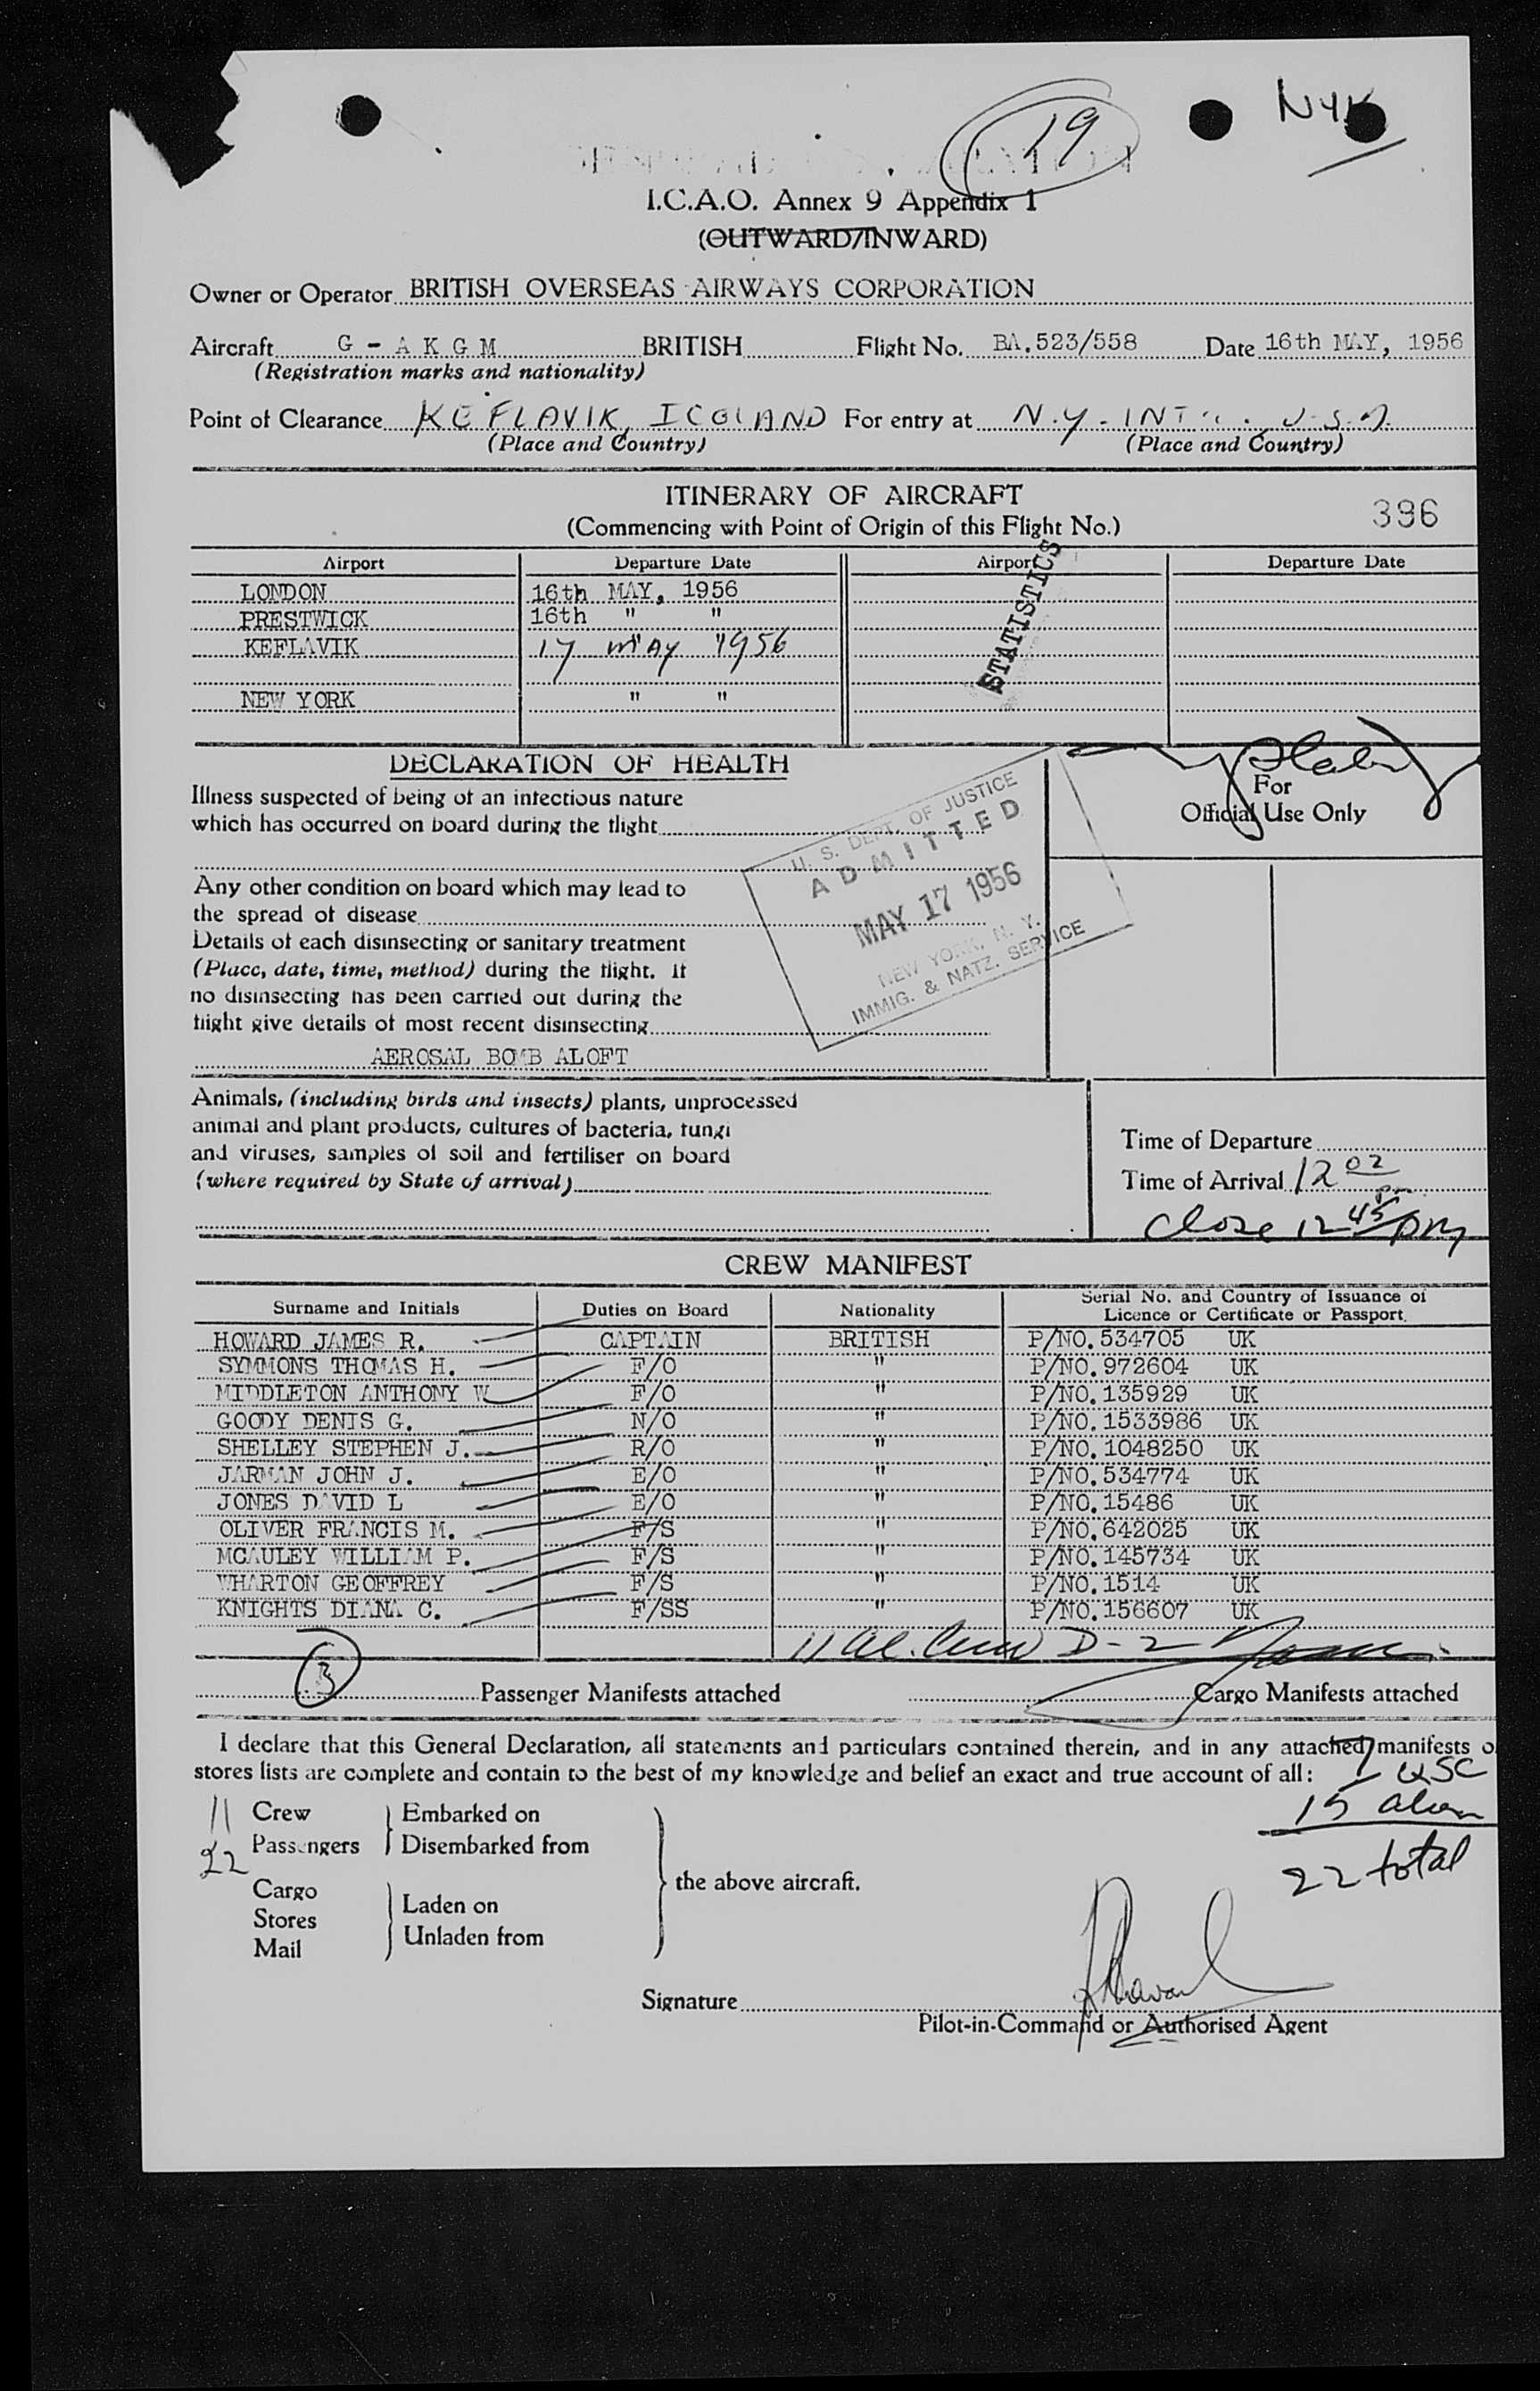 NYK
19
I.C.A.O. Annex 9 Appendix 1
(OUTWARD/INWARD)
Owner or Operator BRITISH OVERSEAS AIRWAYS CORPORATION
Aircraft G - A K G M BRITISH Flight No. BA.523/558 Date 16th MAY, 1956
(Registration marks and nationality)
Point of Clearance KEFLAVIK, ICELAND For entry at N.Y. INT'L. U.S.A.
(Place and Country) (Place and Country)
ITINERARY OF AIRCRAFT
(Commencing with Point of Origin of this Flight No.)
396
Airport Departure Date Airport Departure Date
LONDON 16th MAY, 1956
PRESTWICK 16th " "
KEFLAVIK 17 may 1956
NEW YORK " "
STATISTICS
DECLARATION OF HEALTH
For
Official Use Only
Illness suspected of being of an infectious nature
which has occurred on board during the flight
Any other condition on board which may lead to
the spread of disease
Details of each disinsecting or sanitary treatment
(Place, date, time, method) during the flight. If
no disinsecting has been carried out during the
flight give details of most recent disinsecting
AEROSAL BOMB ALOFT
U. S. DEPT. OF JUSTICE
ADMITTED
MAY 17 1956
NEW YORK, N. Y.
IMMIG. & NATZ. SERVICE
Animals, (including birds and insects) plants, unprocessed
animal and plant products, cultures of bacteria, fungi
and viruses, samples of soil and fertiliser on board
(where required by State of arrival)
Time of Departure
Time of Arrival 12 02 pm
Close 12 45 pm
CREW MANIFEST
Surname and Initials Duties on Board Nationality Serial No. and Country of Issuance of
Licence or Certificate or Passport.
HOWARD JAMES R. CAPTAIN BRITISH P/NO.534705 UK
SYMMONS THOMAS H. F/O " P/NO.972604 UK
MIDDLETON ANTHONY W F/O " P/NO.135929 UK
GOODY DENIS G. N/O " P/NO.1533986 UK
SHELLEY STEPHEN J. R/O " P/NO.1048250 UK
JARMAN JOHN J. E/O " P/NO.534774 UK
JONES DAVID L E/O " P/NO.15486 UK
OLIVER FRANCIS M. F/S " P/NO.642025 UK
MCAULEY WILLIAM P. F/S " P/NO.145734 UK
WHARTON GEOFFREY F/S " P/NO.1514 UK
KNIGHTS DIANA C. F/SS " P/NO.156607 UK
11 al. Crew D-2
3 Passenger Manifests attached Cargo Manifests attached
I declare that this General Declaration, all statements and particulars contained therein, and in any attached manifests o
stores lists are complete and contain to the best of my knowledge and belief an exact and true account of all:
7 USC
15 alien
22 total
11 Crew Embarked on
22 Passengers Disembarked from
the above aircraft.
Cargo
Stores
Mail
Laden on
Unladen from
Signature
Pilot-in-Command or Authorised Agent